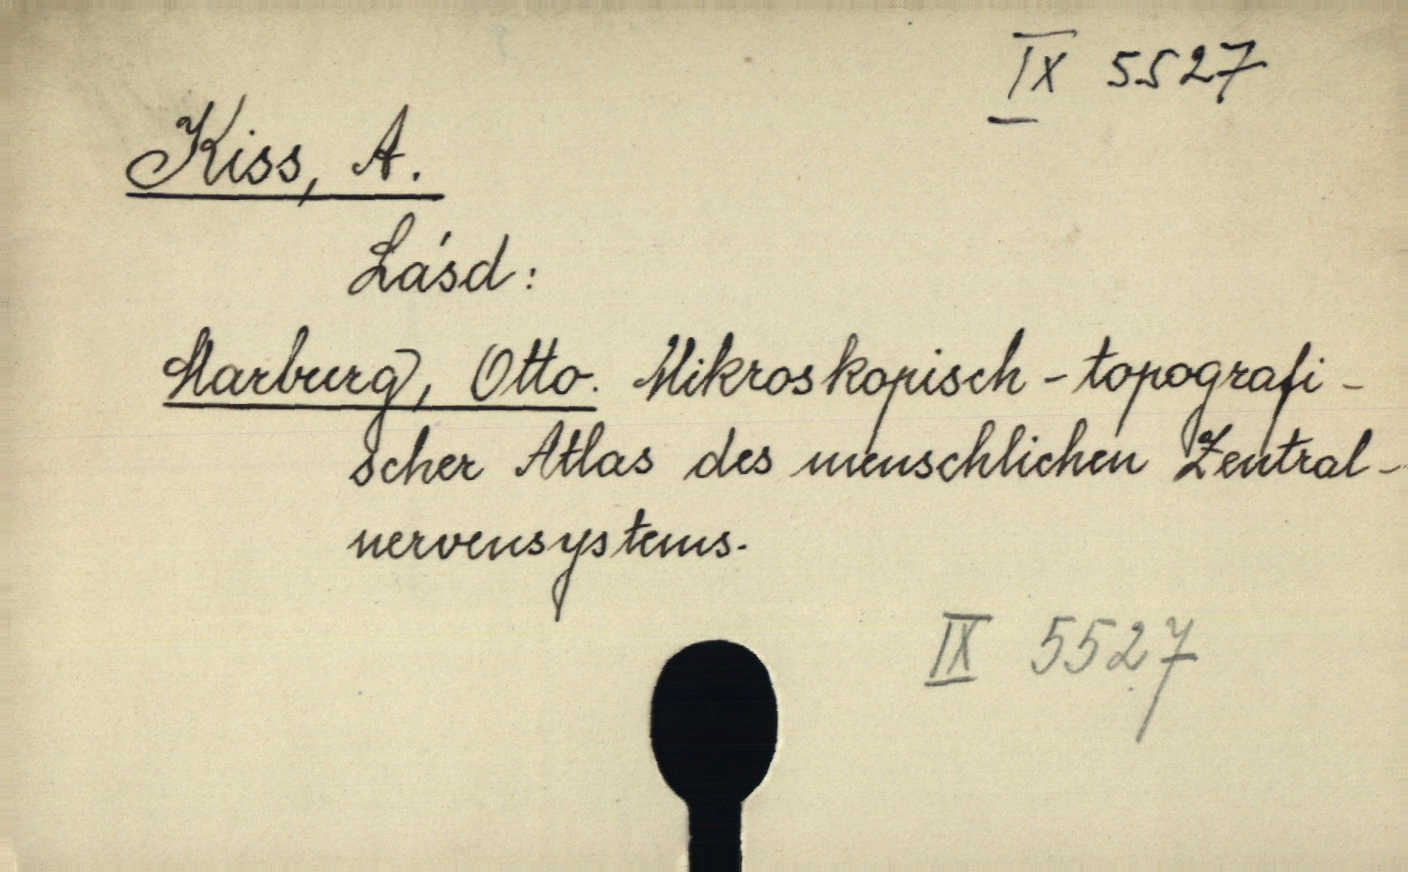 IX 5527
Kiss, A.
Lásd:
Marburg, Otto. Mikroskopisch-topografi-
scher Atlas des menschlichen Zentral-
nervensystems.
IX 5527